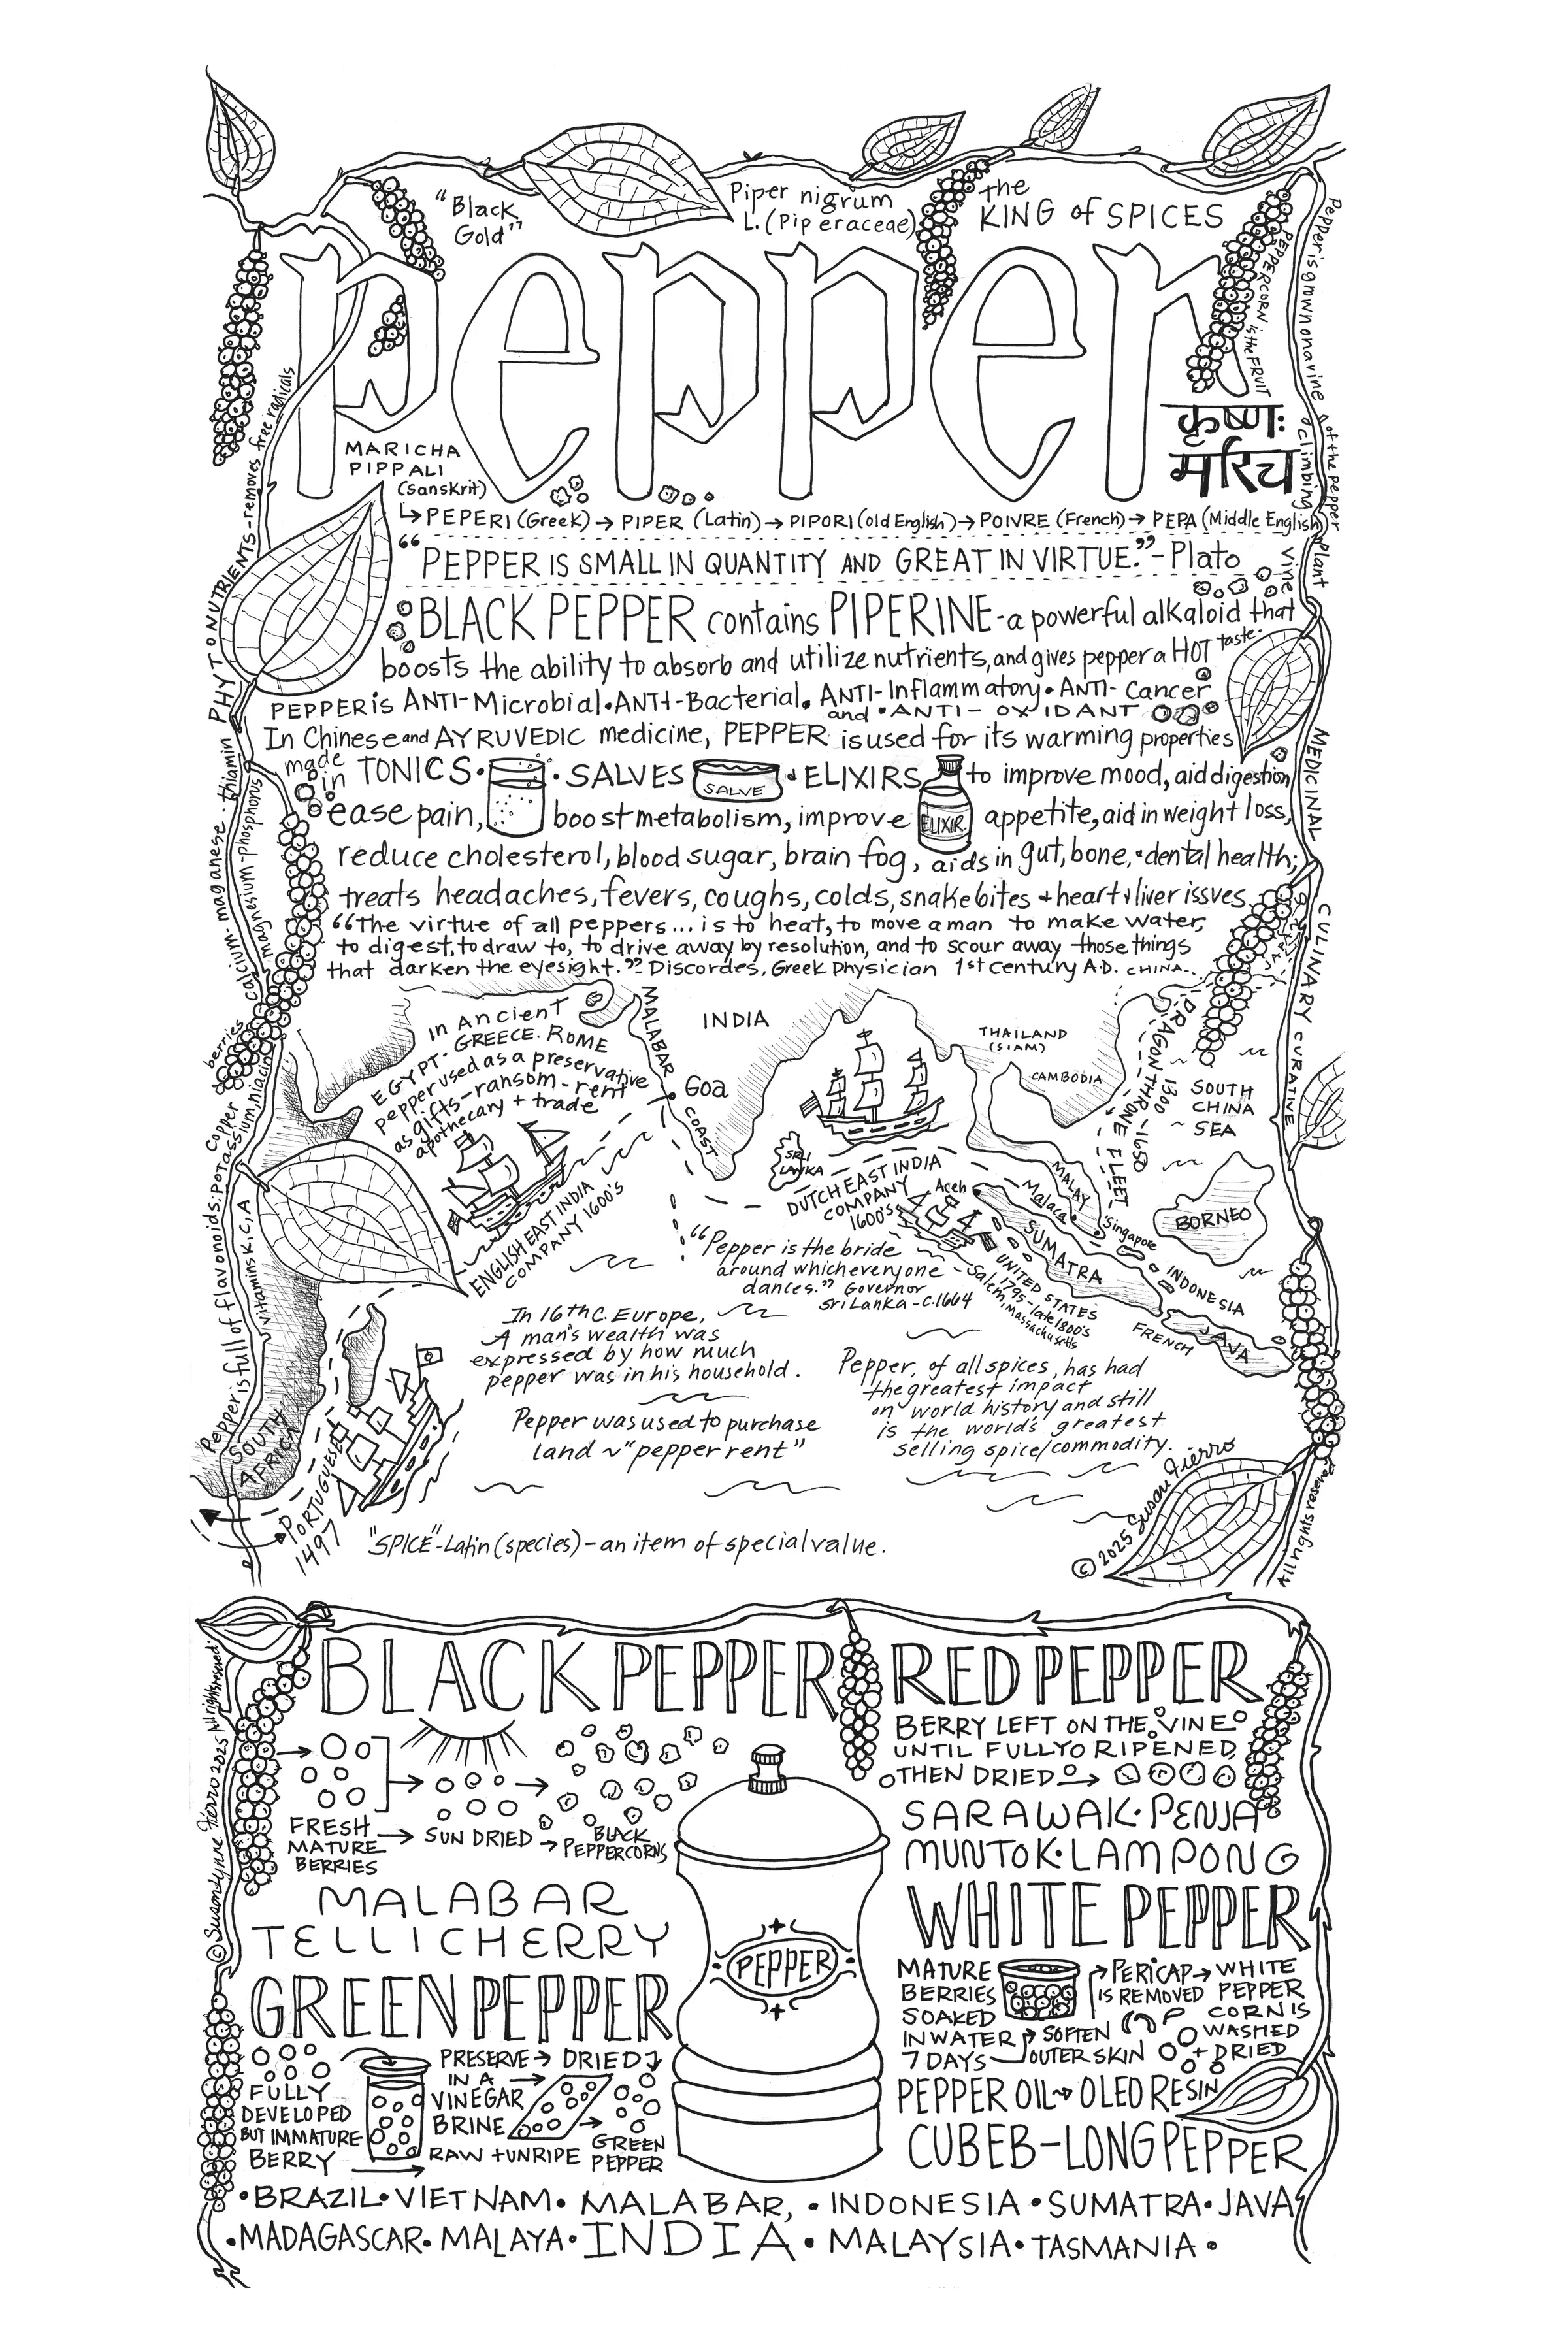 "Black
Gold"
Piper nigrum
L. (Piperaceae)
the
KING of SPICES
pepper
PEPPERCORN is the FRUIT
of the pepper
Pepper is grown on a vine
a climbing
vine
plant
कृष्णः
मरिच
MARICHA
PIPPALI
(Sanskrit)
↳PEPERI (Greek) → PIPER (Latin) → PIPORI (old English) → POIVRE (French) → PEPA (Middle English)
"PEPPER IS SMALL IN QUANTITY AND GREAT IN VIRTUE." - Plato
BLACK PEPPER contains PIPERINE - a powerful alkaloid that
boosts the ability to absorb and utilize nutrients, and gives pepper a HOT taste.
PEPPER is ANTI-Microbial • ANTI-Bacterial • ANTI-Inflammatory • ANTI-Cancer
and • ANTI-OXIDANT
In Chinese and AYRUVEDIC medicine, PEPPER is used for its warming properties
made
in TONICS • • SALVES SALVE + ELIXIRS to improve mood, aid digestion
ease pain, boost metabolism, improve ELIXIR appetite, aid in weight loss,
reduce cholesterol, blood sugar, brain fog, aids in gut, bone, + dental health;
treats headaches, fevers, coughs, colds, snakebites + heart + liver issves.
"The virtue of all peppers... is to heat, to move a man to make water,
to digest, to draw to, to drive away by resolution, and to scour away those things
that darken the eyesight." Discordes, Greek Physician 1st Century A.D.
CHINA...
Pepper is full of flavonoids: Potassium, niacin
vitamins K, C, A
copper
berries
calcium - maganese - thiamin
magnesium - phosphorus
PHYTONUTRIENTS - removes free radicals
MEDICINAL
CULINARY
CURATIVE
In Ancient
EGYPT - GREECE. ROME
pepper used as a preservative
as gifts - ransom - rent
apothecary + trade
MALABAR
COAST
INDIA
Goa
THAILAND
(SIAM)
CAMBODIA
DRAGON THRONE FLEET
1300 - 1650
SOUTH
CHINA
SEA
SRI
LANKA
DUTCH EAST INDIA
COMPANY
1600's
Aceh
MALAY
Malaca
Singapore
BORNEO
SUMATRA
INDONESIA
FRENCH
JAVA
ENGLISH EAST INDIA
COMPANY 1600's
"Pepper is the bride
around which everyone
dances." Governor
Sri Lanka - C. 1664
UNITED STATES
1795 - late 1800's
Salem, Massachusetts
In 16th C. Europe,
A man's wealth was
expressed by how much
pepper was in his household.
Pepper was used to purchase
land ~ "pepper rent"
Pepper, of all spices, has had
the greatest impact
on world history and still
is the world's greatest
selling spice/commodity.
SOUTH
AFRICA
PORTUGUESE
1497
"SPICE" - Latin (species) - an item of special value.
© 2025 Susan Fierro
All rights reserved
BLACK PEPPER
FRESH
MATURE
BERRIES
→ SUN DRIED →
BLACK
PEPPERCORNS
MALABAR
TELLICHERRY
GREEN PEPPER
FULLY
DEVELOPED
BUT IMMATURE
BERRY
PRESERVE → DRIED
IN A
VINEGAR
BRINE
RAW + UNRIPE
GREEN
PEPPER
PEPPER
RED PEPPER
BERRY LEFT ON THE VINE
UNTIL FULLY RIPENED
THEN DRIED →
SARAWAK • PENJA
MUNTOK • LAMPONG
WHITE PEPPER
MATURE
BERRIES
SOAKED
IN WATER
7 DAYS
SOFTEN
OUTER SKIN
PERICAP →
IS REMOVED
WHITE
PEPPER
CORN IS
WASHED
+ DRIED
PEPPER OIL → OLEORESIN
CUBEB - LONG PEPPER
• BRAZIL • VIETNAM • MALABAR, • INDONESIA • SUMATRA • JAVA
• MADAGASCAR • MALAYA • INDIA • MALAYSIA • TASMANIA •
© Susanlynne Fierro 2025 All rights reserved